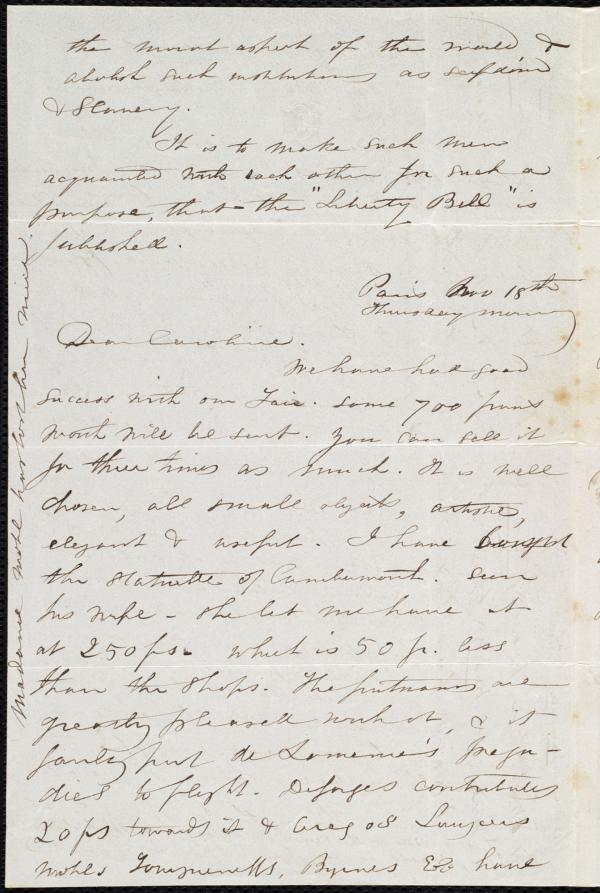 the moral aspect of the world &
abolish such institutions as serfdom
& Slavery.
It is to make such men
acquainted with each other for such a
purpose, that the "Liberty Bell" is
published.
Paris Nov 18th
Thursday morning
Dear Caroline.
We have had good
success with our Fair. Some 700 francs
worth will be sent. You can sell it
for three times as much. It is well
chosen, all small objects, artistic,
elegant & useful. I have bought
the statuette of . Seen
his wife - She let me have it
at 250 fs. which is 50 fr. less
than the shops. The are
greatly pleased with it, & it
fairly put de Lomenie's preju-
dices to flight. Desforges contributes
20 fs towards it &
Mohls , Byrnes &c have
Madame Mohl has lost her niece.